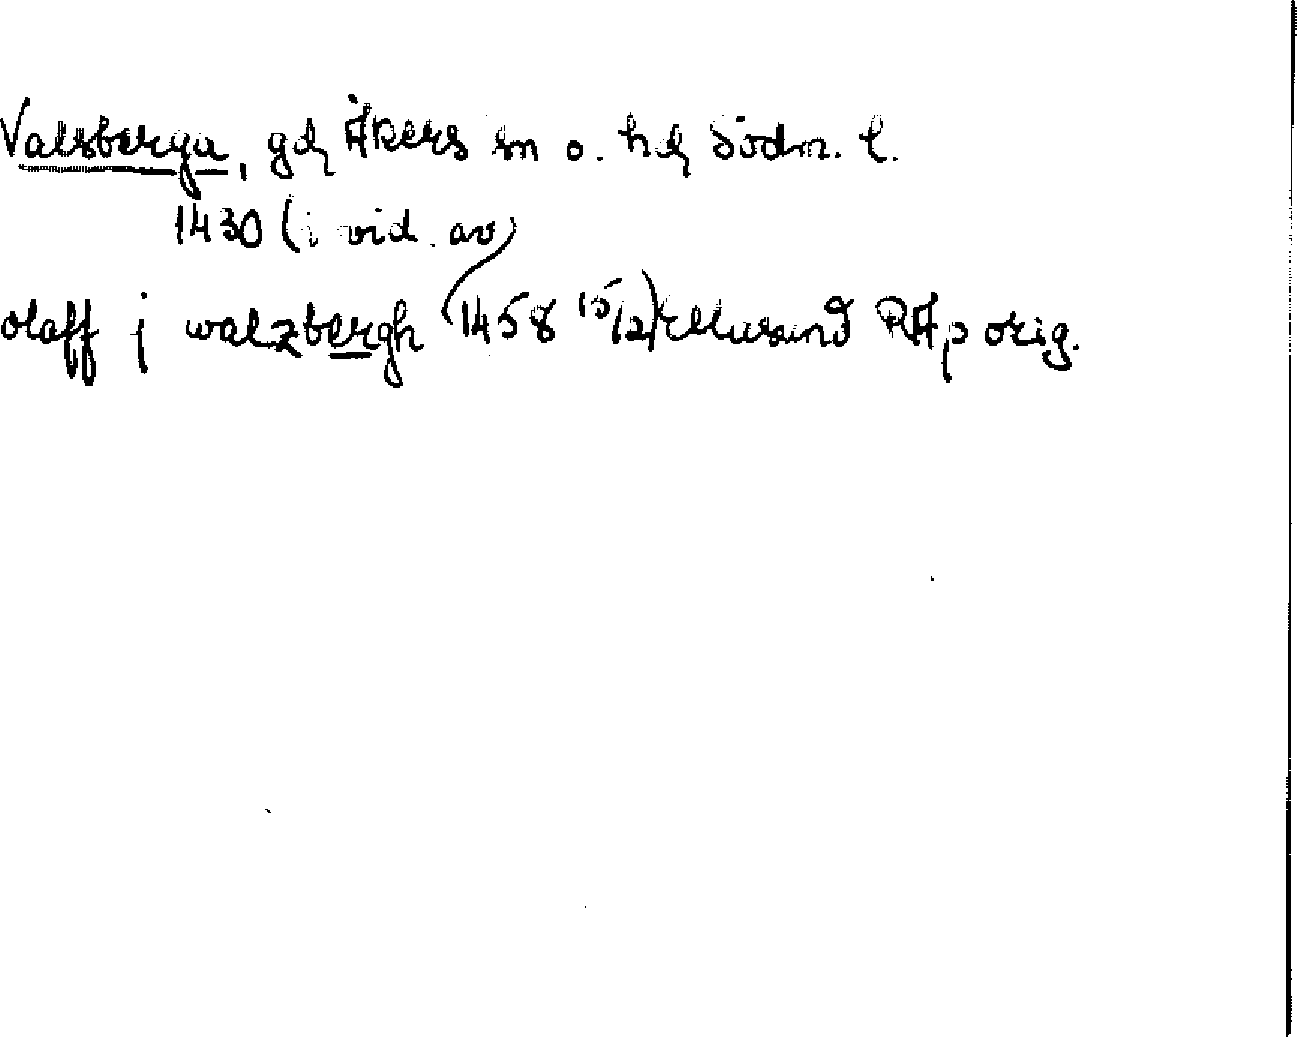 Valsberga, gd, Åkers sn o. hd, Södm. l.
1430 (i vid. av)
olaff j walzbergh (1458 15/12) Ellusund RAp orig.